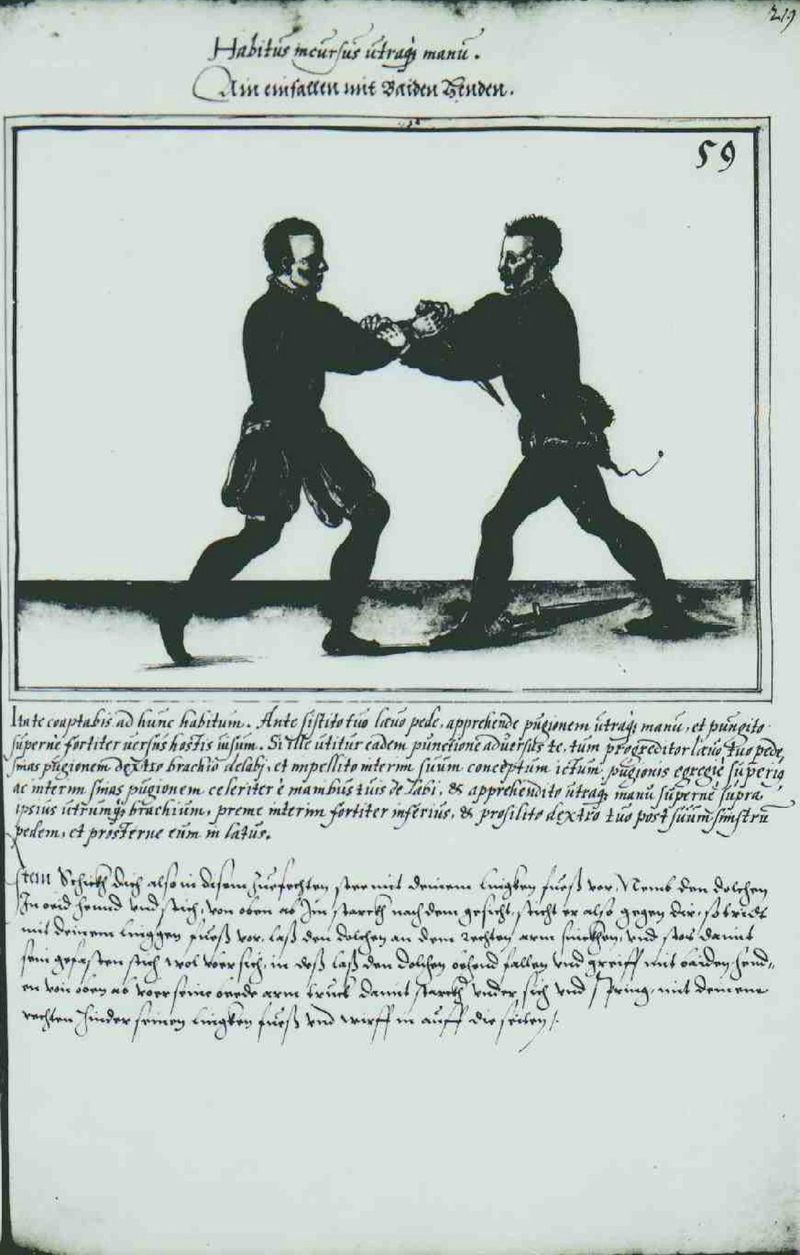 219
Habitus incursus utraq; manu.
Ain einfallen mit Baiden Henden.
59
Ita te coaptabis ad hunc habitum. Ante sistito tuo laevo pede, apprehende pugionem utraq; manu, et pungito
superne fortiter versus hostis visum. Si ille utitur eadem punctione adversus te, tum progreditor laevo tuo pede,
sinas pugionem dextro brachio delabi, et impellito interim suum conceptum ictum pugionis egregie superiq
ac interim sinas pugionem celeriter è manibus tuis delabi, & apprehendito utraq; manu superne supra,
ipsius utrumq; brachium, preme interim fortiter inferius, & prosilito dextro tuo post suum sinistrū
pedem, et prosterne eum in latus.
Item Schickh dich also in disem Zuefechten stee mit deinem linggken fuess vor, Nemb den dolchen
In baid hennd vnd stich, von oben ab Jm starckh nach dem gesicht, sticht er also gegen dir, so trit
mit deinem linggen fuess vor, lass den dolchen an dem rechten arm sinckhen, vnd stos damit
sein gefasten stich wol vber sich, in dess lass den dolchen behend fallen vnd greiff mit baiden hend,
en von oben ab vber seine beede arm truck damit starckh vnder sich vnd spring, mit deinem
rechten hinder seinen linggken fuess vnd wirff in auff die seiten /.